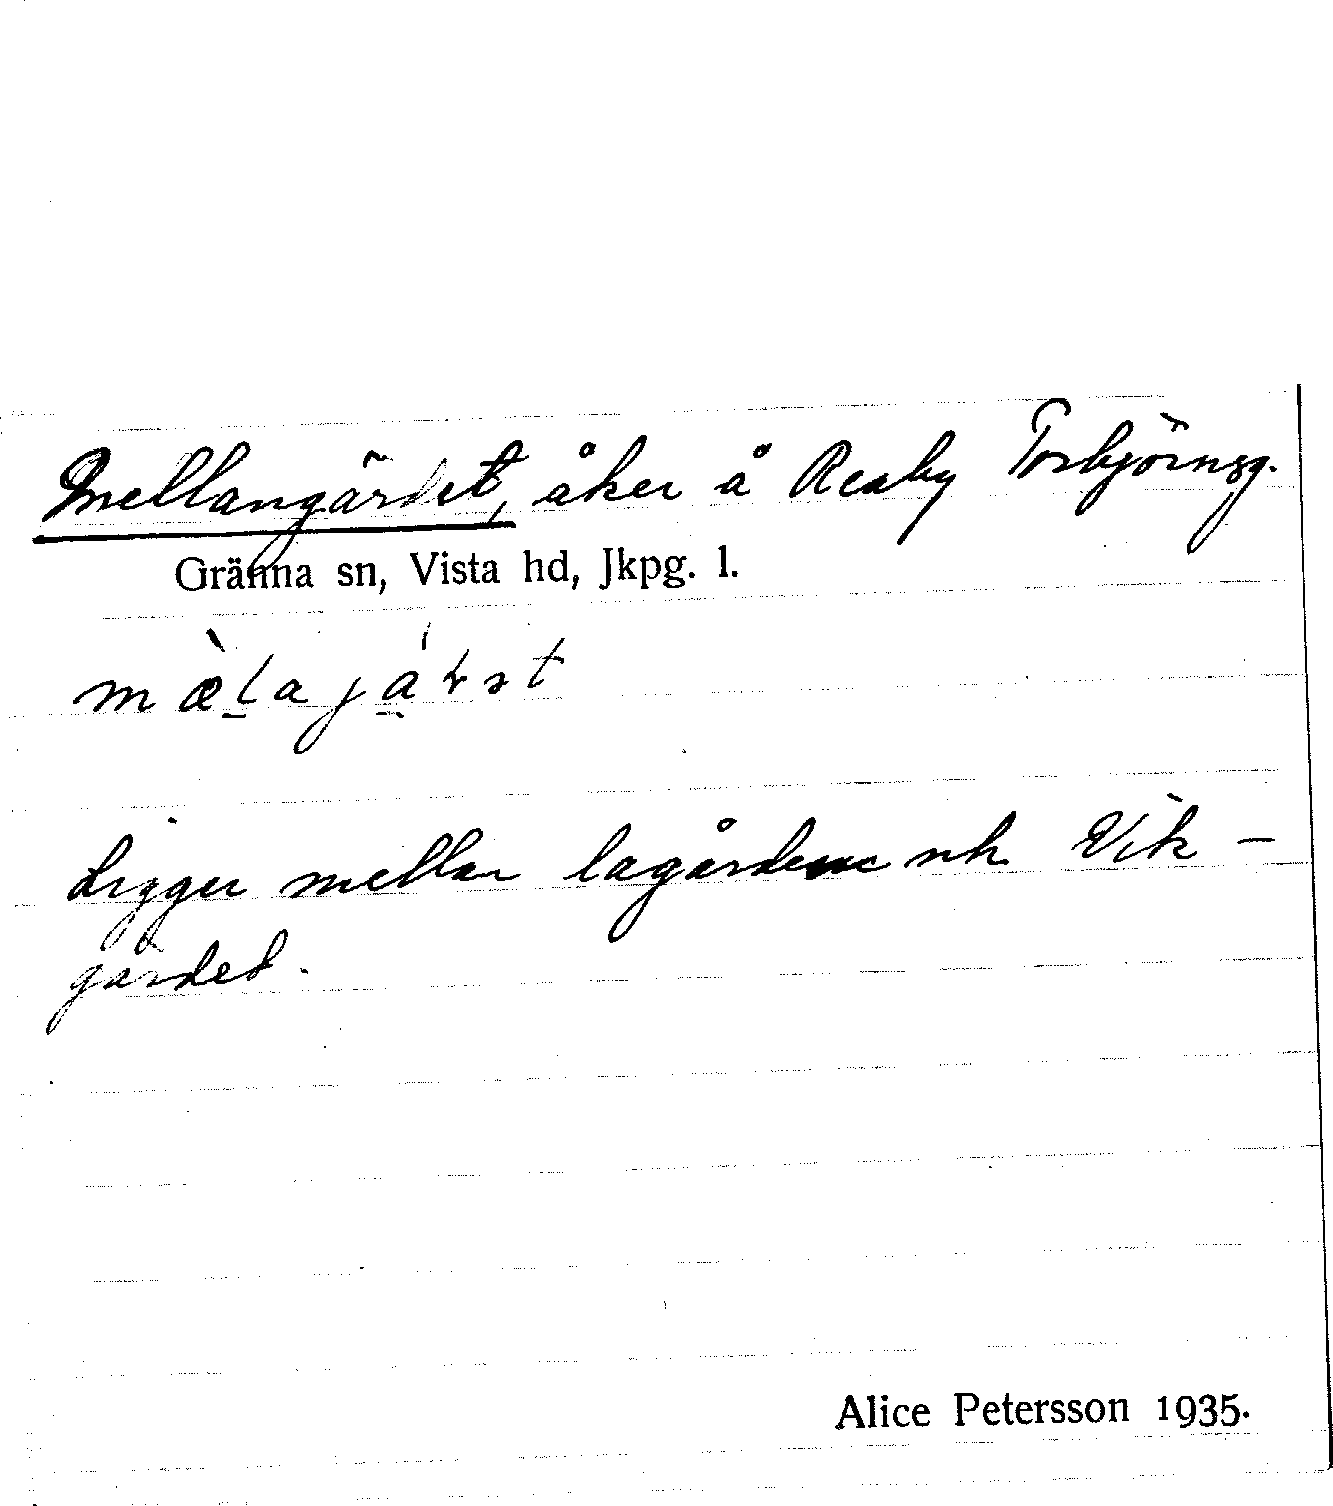 Mellangärdet, åker å Reaby Torbjörnsg.
Gränna sn, Vista hd, Jkpg. l.
Ligger mellan lagårdene och Vik-
gärdet.
Alice Petersson 1935.